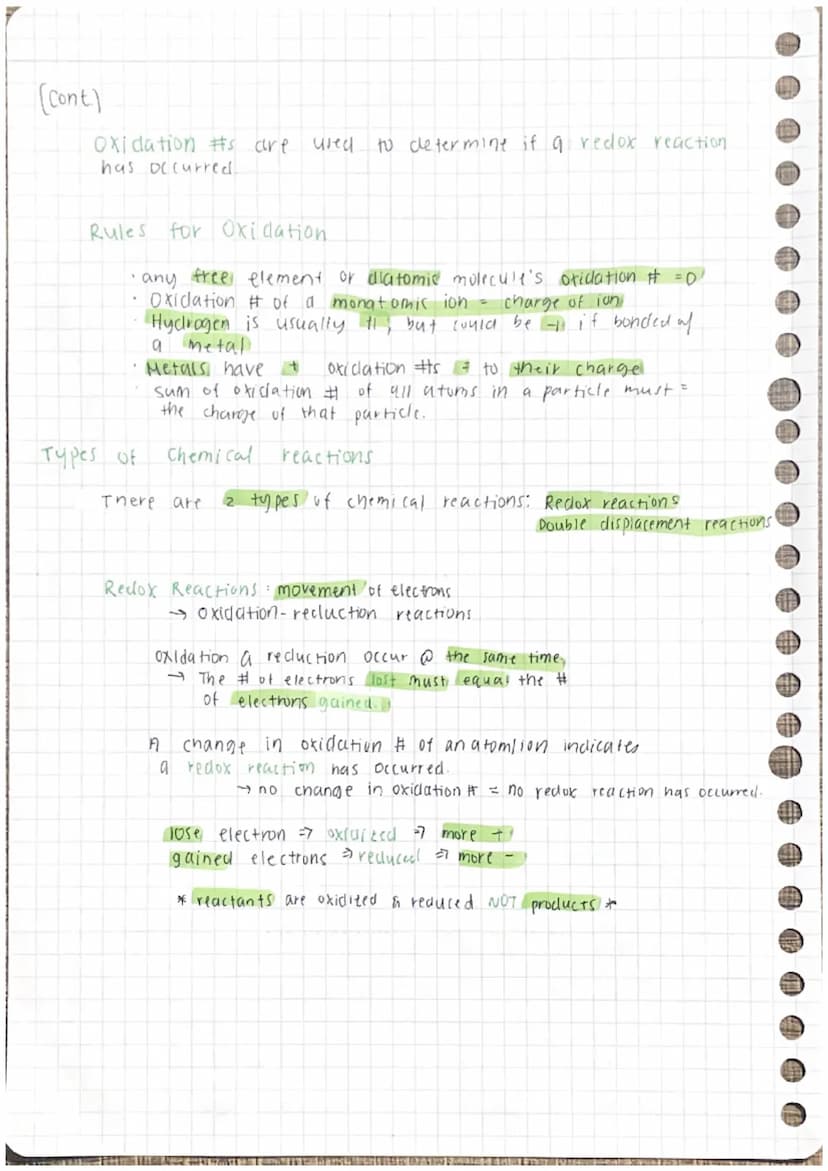 (Cont)
Oxidation #s are used to determine if a redox reaction
has occurred.
Rules for Oxidation
· any free element or diatomic molecule's oxidation # = 0
· Oxidation # of a monatomic ion = charge of ion
· Hydrogen is usually +1, but could be -1 if bonded w/
a metal
· Metals have + oxidation #s = to their charge
· sum of oxidation # of all atoms in a particle must =
the charge of that particle.
Types of Chemical reactions
There are 2 types of chemical reactions: Redox reactions
Double displacement reactions
Redox Reactions: movement of electrons
→ oxidation-reduction reactions
Oxidation & reduction occur @ the same time,
→ The # of electrons lost must equal the #
of electrons gained.
A change in oxidation # of an atom/ion indicates
a redox reaction has occurred.
→ no change in oxidation # = no redox reaction has occurred.
lose electron ⇒ oxidized ⇒ more +
gained electrons ⇒ reduced ⇒ more -
* reactants are oxidized & reduced NOT products *